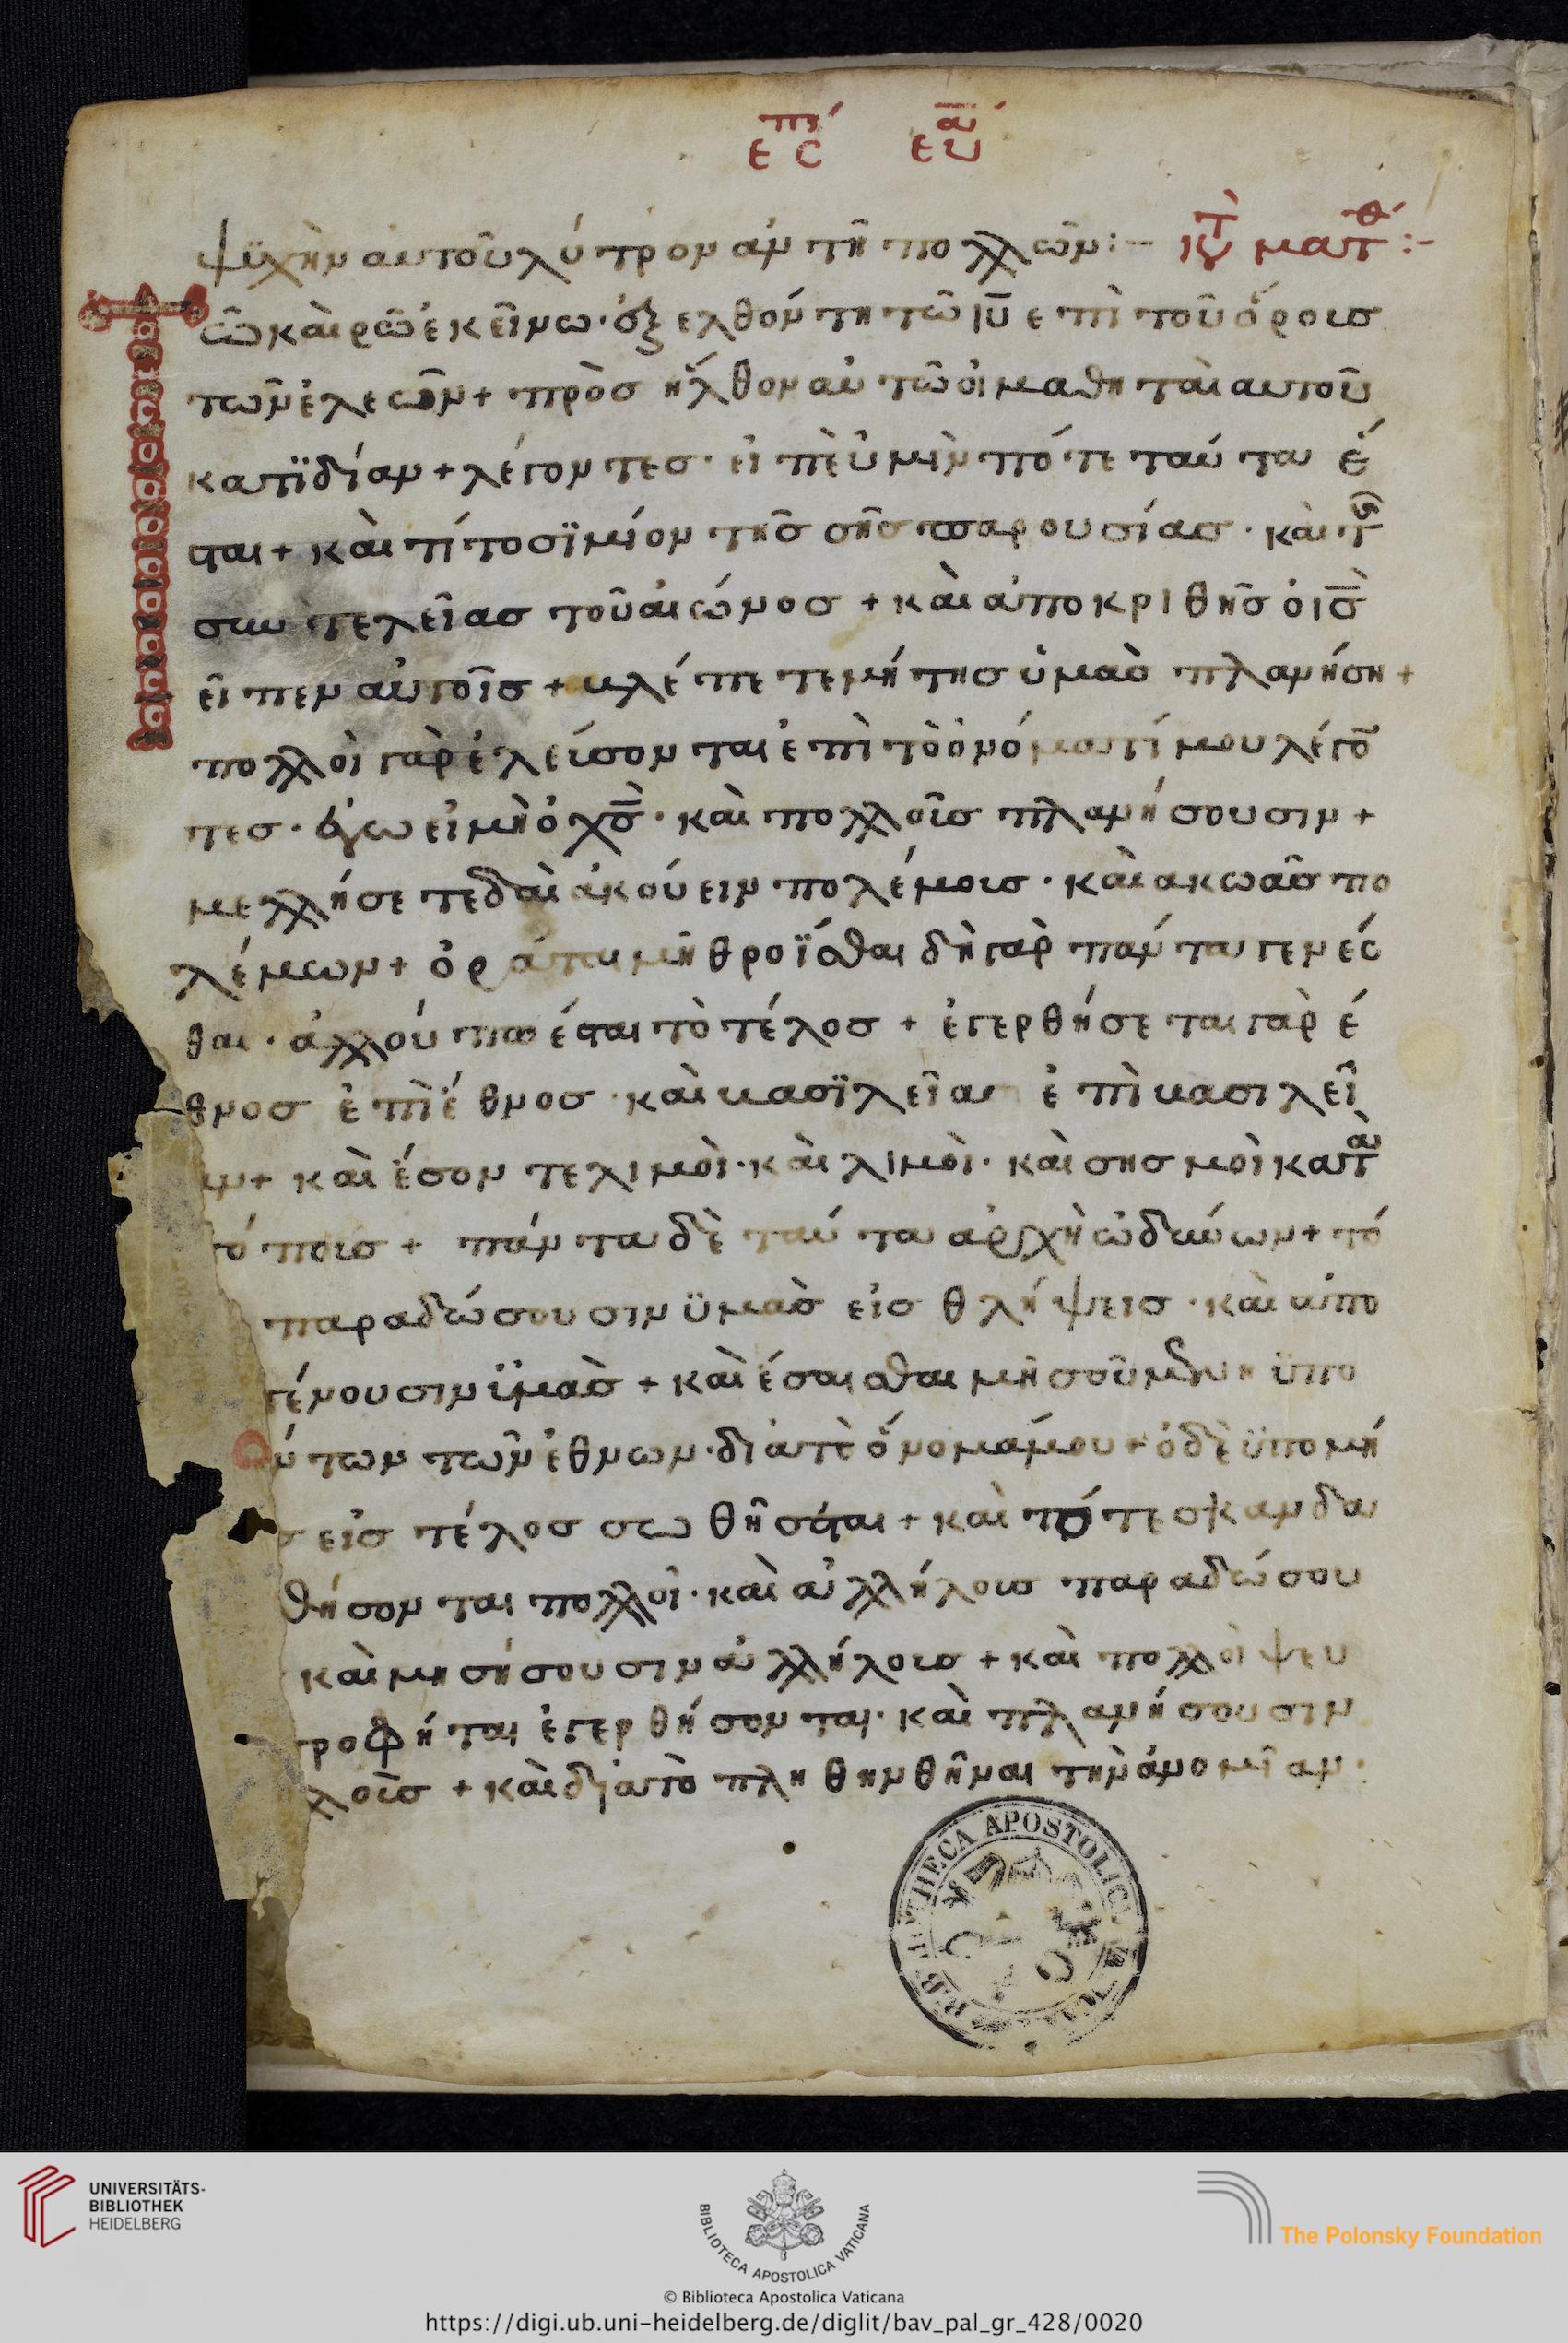 εσπ ευα
ψϋχὴν αυτοῦ λύτρον ἀντὴ πολλῶν :— ματθ :-
Τῶ καὶρῶ ἐκεῖνω · ἐξελθόντη τῶ ιυ επὶ τοῦ ὄρουσ
τῶν ἐλεῶν + πρὸσ ἤλθον αὐτῶ οἱ μαθηταὶ αυτοῦ
κατϊδίαν + λέγοντεσ · εἰπὲ ὑμὶν πότε ταύτα έ
σται + καὶ τί το σϊμίον τῆσ σῆσ παρουσίασ · καὶ τ
συντελεῖασ τοῦ αἰώνοσ + καὶ ἀποκριθῆσ ὁ ισ
εῖπεν αὐτοῖσ + βλέπετε μή τησ ὑμασ πλανήση +
πολλοὶ γὰρ ἐλεύσονται ἐπὶ τὸ ὀνόματί μου λέγο
τεσ · ἐγω εἰμὴ ὁ χσ · καὶ πολλοῖσ πλανήσουσιν +
μελλήσετε δαὶ ἀκούειν πολέμουσ · καὶ ακωᾶσ πο
λέμων + ὁράται μὴ θροΐσθαι δὴ γὰρ πάντα γενέσ
θαι · ἀλλούπω έσται τὸ τέλοσ + ἐγερθήσεται γὰρ έ
θνοσ ἐπὶ έθνοσ · καὶ βασϊλεῖα ἐπὶ βασιλεῖ
αν + καὶ έσοντε λιμοὶ · καὶ λιμοὶ · καὶ σησμοὶ κατὰ
τόπουσ + πάντα δὲ ταύτα ἀρχὴ ὠδύνων + τό
παραδώσουσιν ϋμασ εἰσ θλήψεισ · καὶ ἀπο
τένουσιν ϋμασ + καὶ έσαισθαι μησοῦμενη ϋπο
ντων τῶν ἐθνων · διὰ τὸ όνομά μου + ὁ δὲ ϋπομή
σ εἰσ τέλοσ σωθῆσται + καὶ τότε σκανδα
θήσονται πολλοῖ · καὶ ἀλλήλουσ παραδώσου
καὶ μησήσουσιν ἀλλήλουσ + καὶ πολλοὶ ψευ
προφήται ἐγερθήσονται · καὶ πλανήσουσιν
λοὺσ + καὶ διὰ τὸ πληθηνθῆναι τὴν ἀνομῖαν ·
UNIVERSITÄTS-
BIBLIOTHEK
HEIDELBERG
BIBLIOTECA APOSTOLICA VATICANA
The Polonsky Foundation
© Biblioteca Apostolica Vaticana
https://digi.ub.uni-heidelberg.de/diglit/bav_pal_gr_428/0020